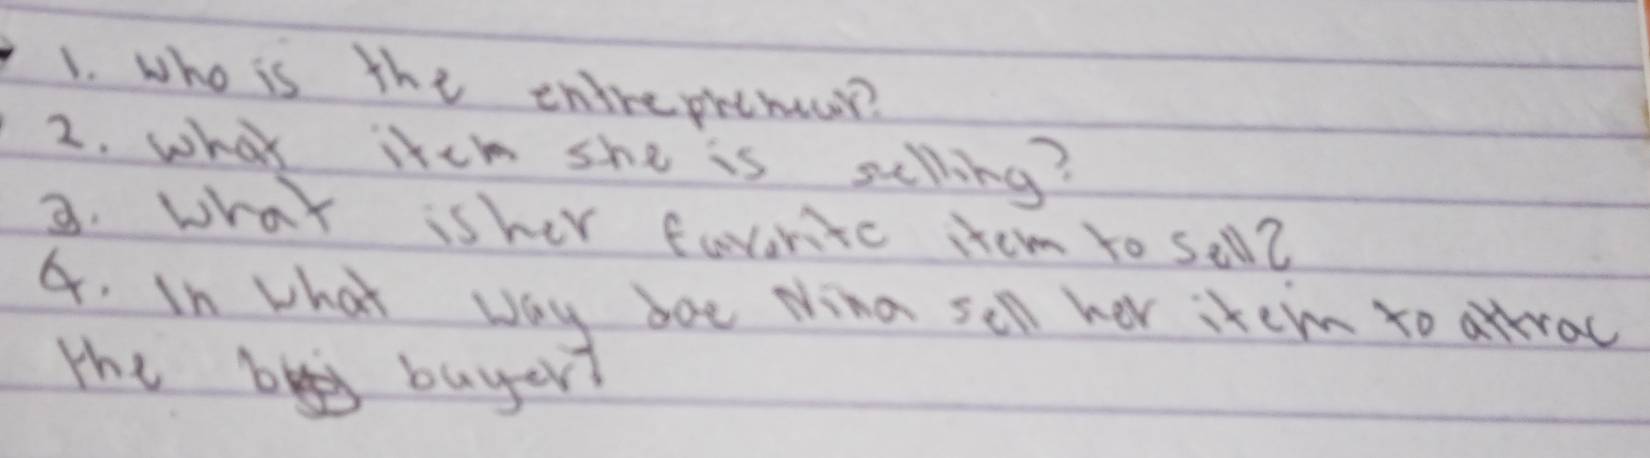 1. Who is the entrepreneur?
2. What item she is selling?
3. What is her favorite item to sell?
4. In what way doe Nina sell her item to attrac
the buyer?